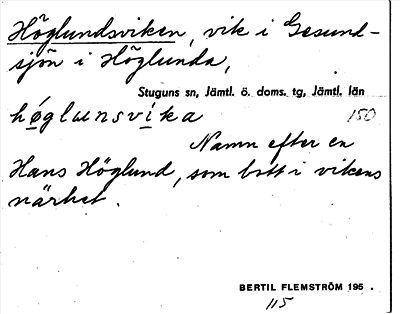 Höglundsviken, vik i Gesund-
sjön i Höglunda,
Stuguns sn, Jämtl. ö. doms. tg, Jämtl. län
höglunsvika 150
Namn efter en
Hans Höglund, som bott i vikens
närhet.
BERTIL FLEMSTRÖM 195 .
115